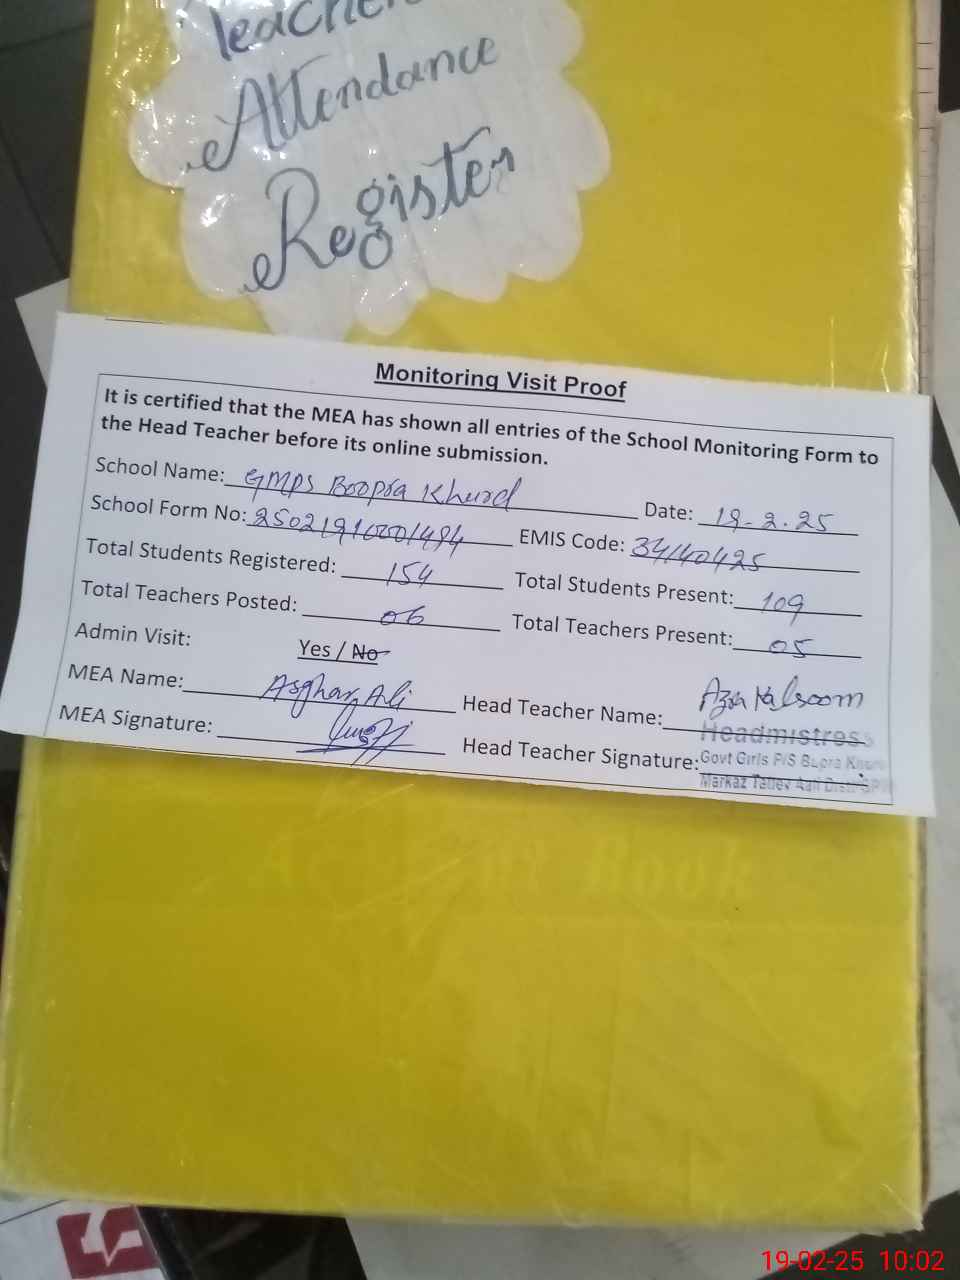 Teacher
Attendance
Register
Monitoring Visit Proof
It is certified that the MEA has shown all entries of the School Monitoring Form to
the Head Teacher before its online submission.
School Name: GMPS Boopra Khurd Date: 19-2-25
School Form No: EMIS Code: 34140425
Total Students Registered: 154 Total Students Present: 109
Total Teachers Posted: 06 Total Teachers Present: 05
Admin Visit: Yes / No
MEA Name: Asghar Ali Head Teacher Name: Azra Kalsoom
MEA Signature: Head Teacher Signature:
Headmistress
Govt Girls P/S Bupra Khurd
Markaz
Book
19-02-25 10:02